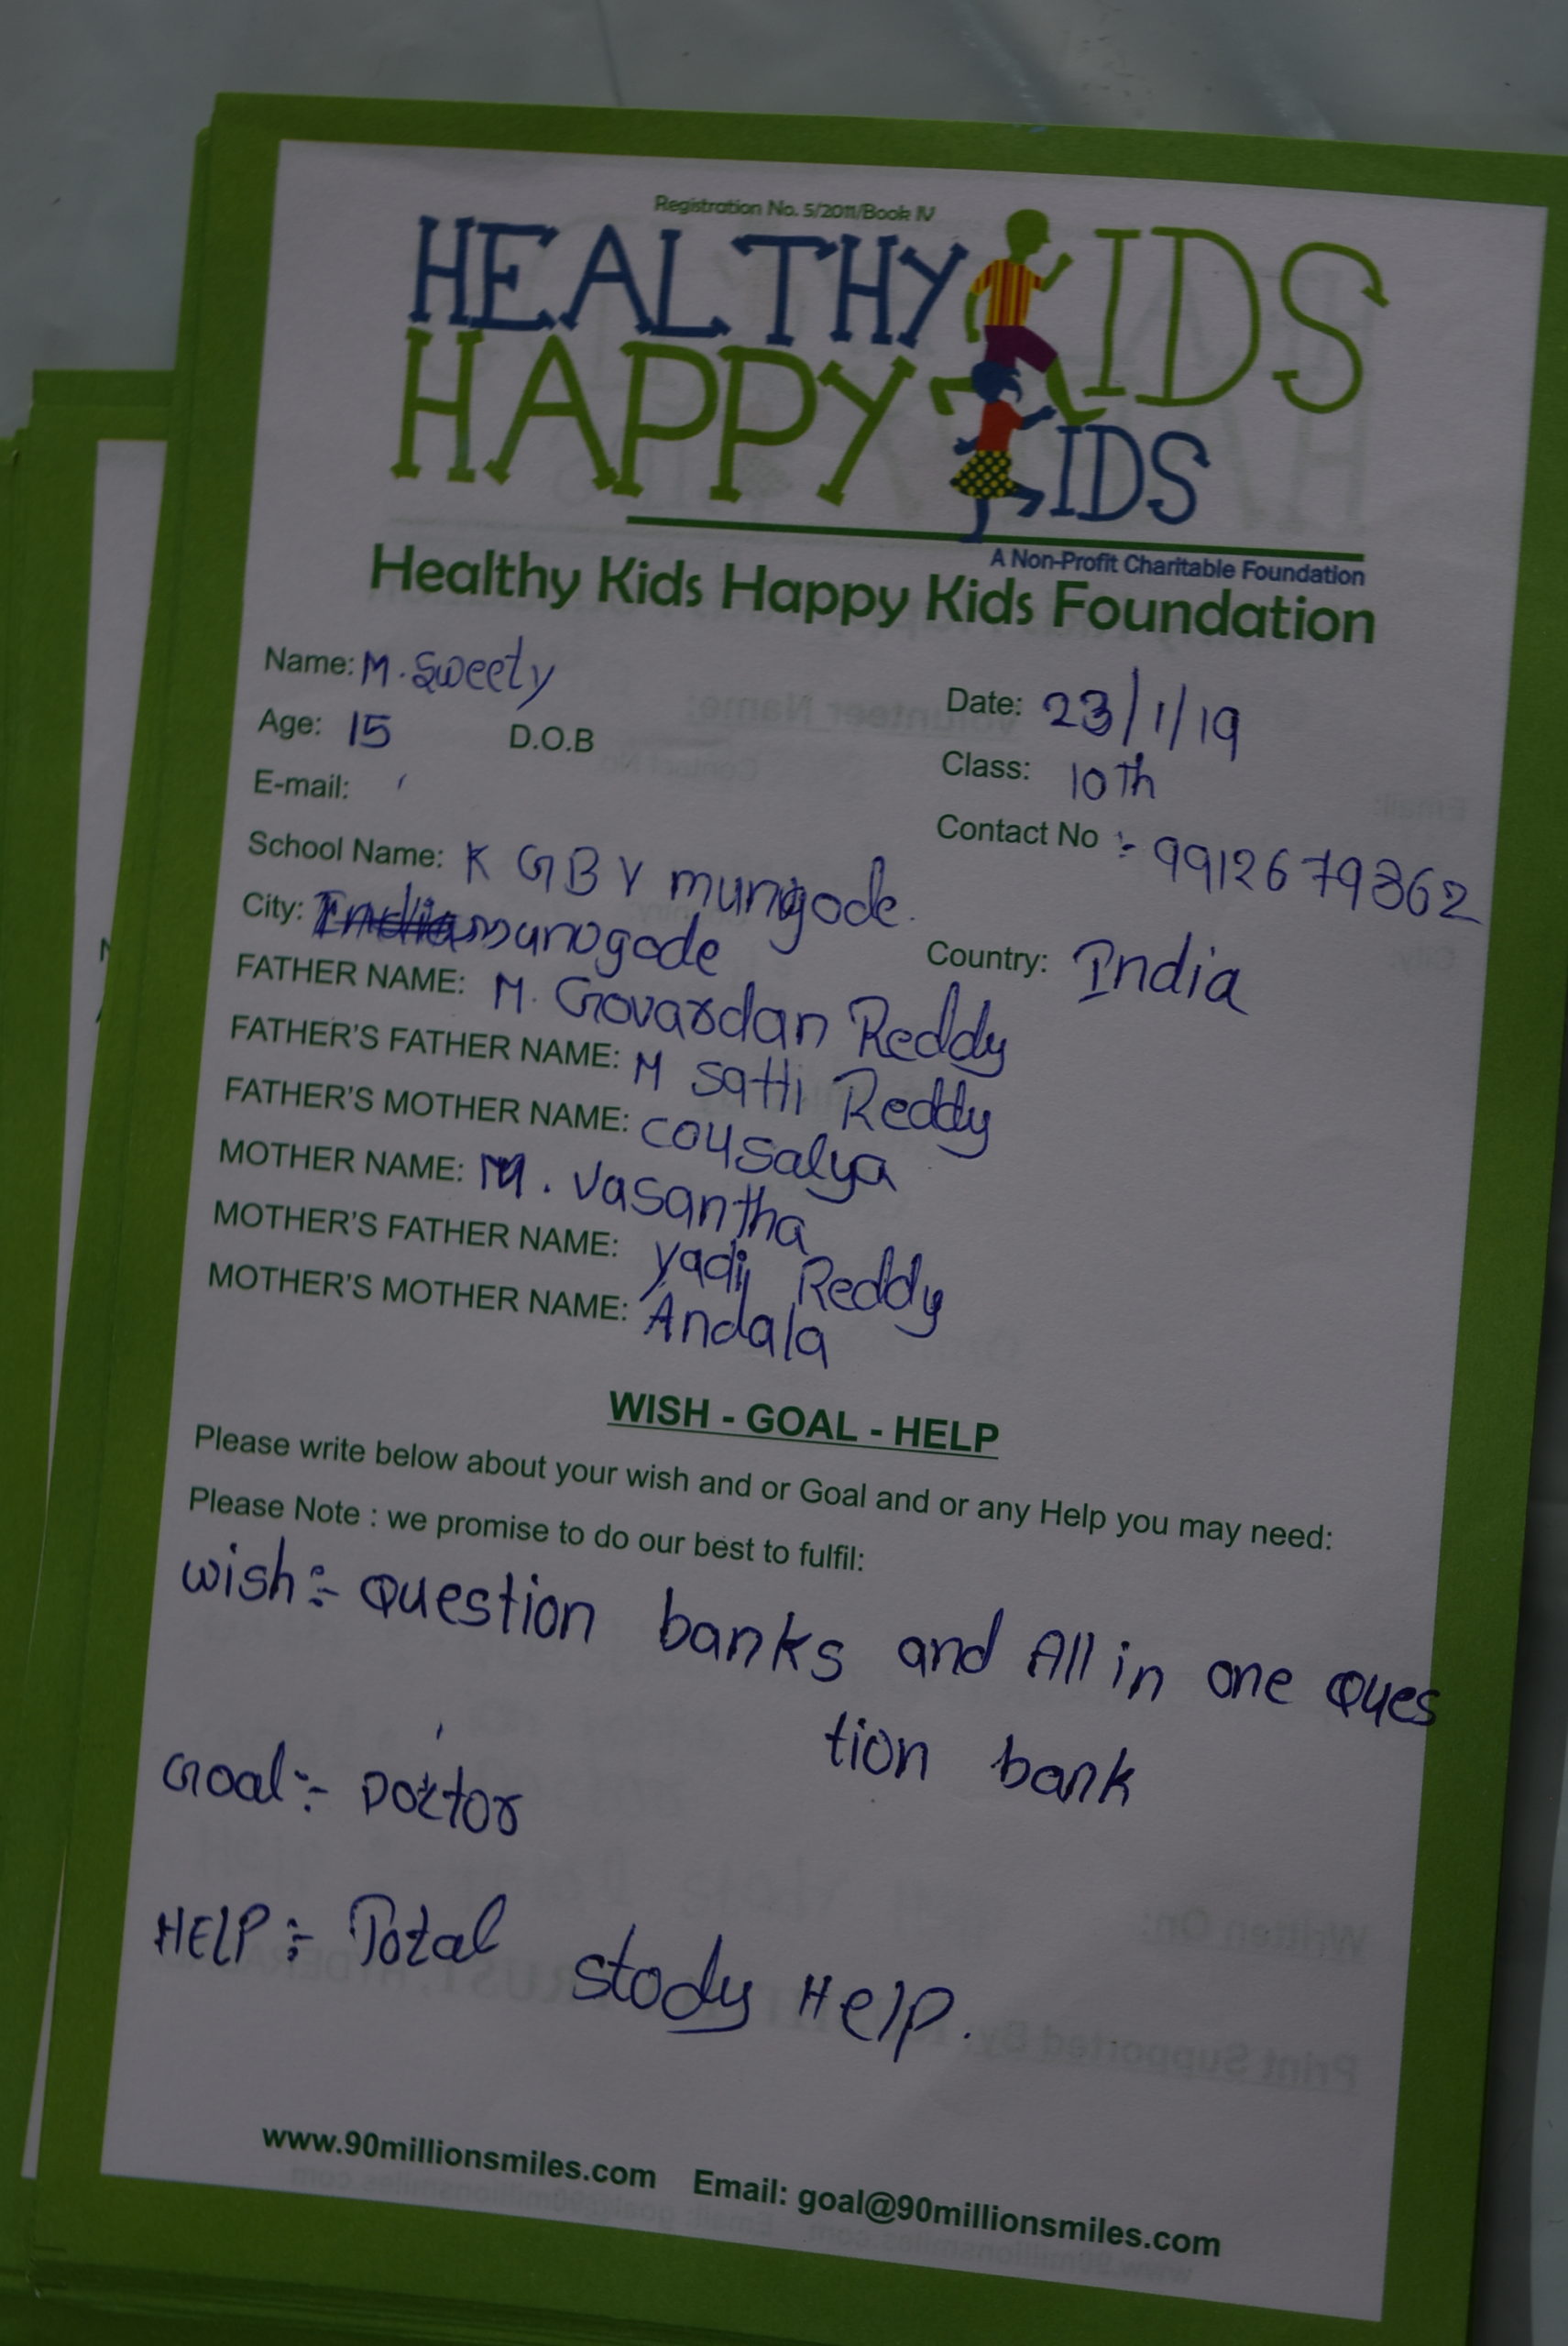 Registration No. 5/2011/Book IV
HEALTHY KIDS
HAPPY KIDS
A Non-Profit Charitable Foundation
Healthy Kids Happy Kids Foundation
Name: M. Sweety
Date: 23/1/19
Age: 15 D.O.B
Class: 10th
E-mail:
Contact No :- 9912679362
School Name: K G B V mungode.
City: India munogode
Country: India
FATHER NAME: M. Govardan Reddy
FATHER'S FATHER NAME: M Satti Reddy
FATHER'S MOTHER NAME: cousalya
MOTHER NAME: M. vasantha
MOTHER'S FATHER NAME: yadi Reddy
MOTHER'S MOTHER NAME: Andala
WISH - GOAL - HELP
Please write below about your wish and or Goal and or any Help you may need:
Please Note : we promise to do our best to fulfil:
wish:- question banks and All in one Ques
tion bank
Goal:- Doctor
HELP:- Total stody Help.
www.90millionsmiles.com Email: goal@90millionsmiles.com